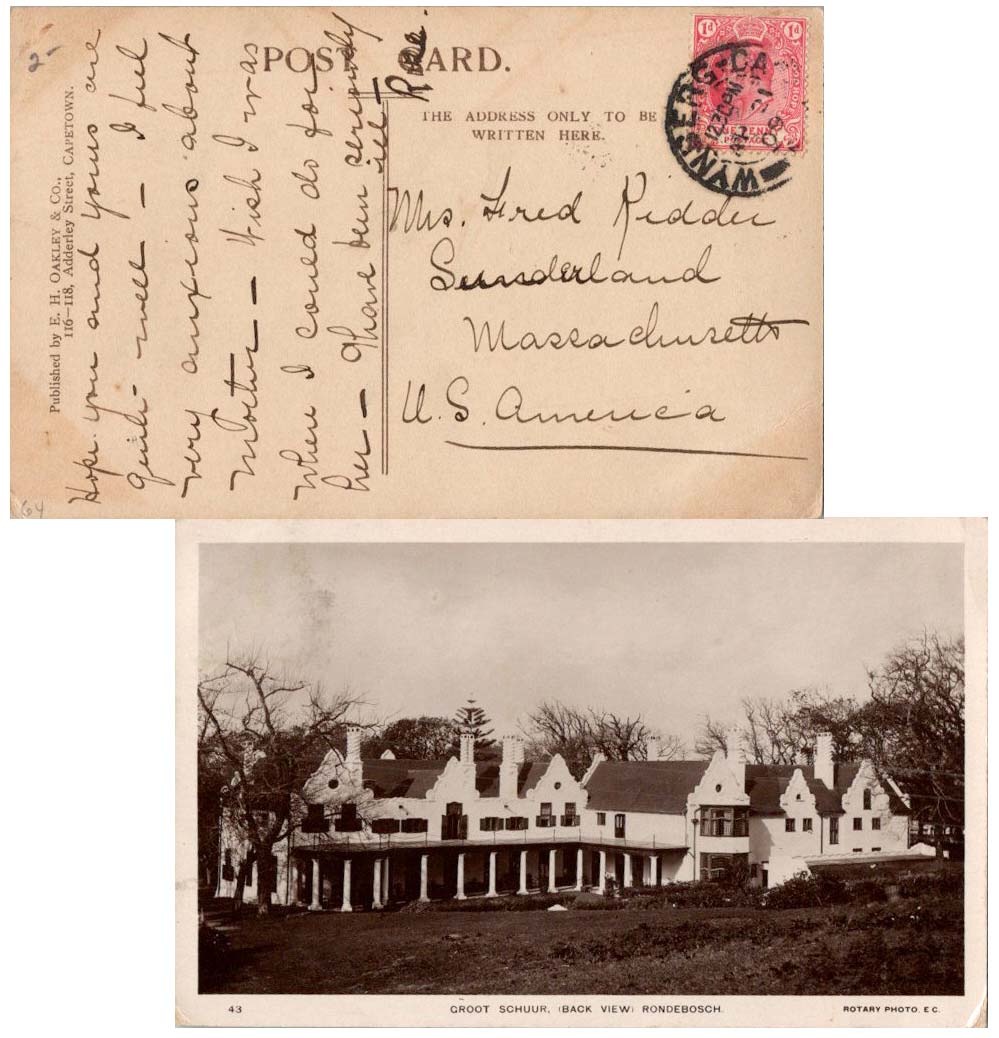 2-
POST CARD.
THE ADDRESS ONLY TO BE
WRITTEN HERE.
1d
WYNBERG
12 30 PM
21
09
Published by E. H. OAKLEY & Co.,
116—118, Adderley Street, CAPETOWN.
Hope you and yours are
quite well — I feel
very anxious about
Mother — Wish I was
where I could do for
her — Have been seriously
ill —
Rose.
Mrs. Fred Kidder
Sunderland
Massachusetts
U.S. America
64
43
GROOT SCHUUR, (BACK VIEW) RONDEBOSCH.
ROTARY PHOTO. E.C.